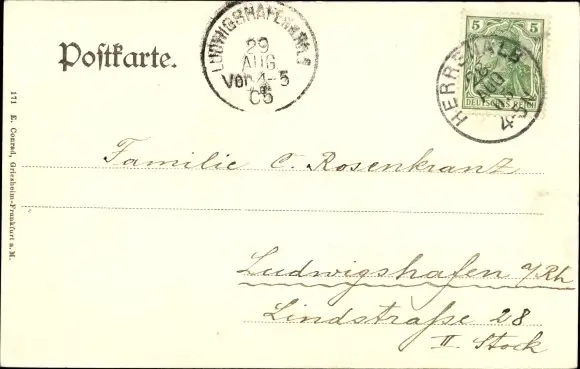 Postkarte.
LUDWIGSHAFEN
29
AUG
Vor 4-5
05
5 5
DEUTSCHES REICH
HERRENALB
AUG
4-5
171 E. Conrad, Griesheim-Frankfurt a. M.
Familie C. Rosenkranz
Ludwigshafen a/Rh
Lindstraße 28
II. Stock